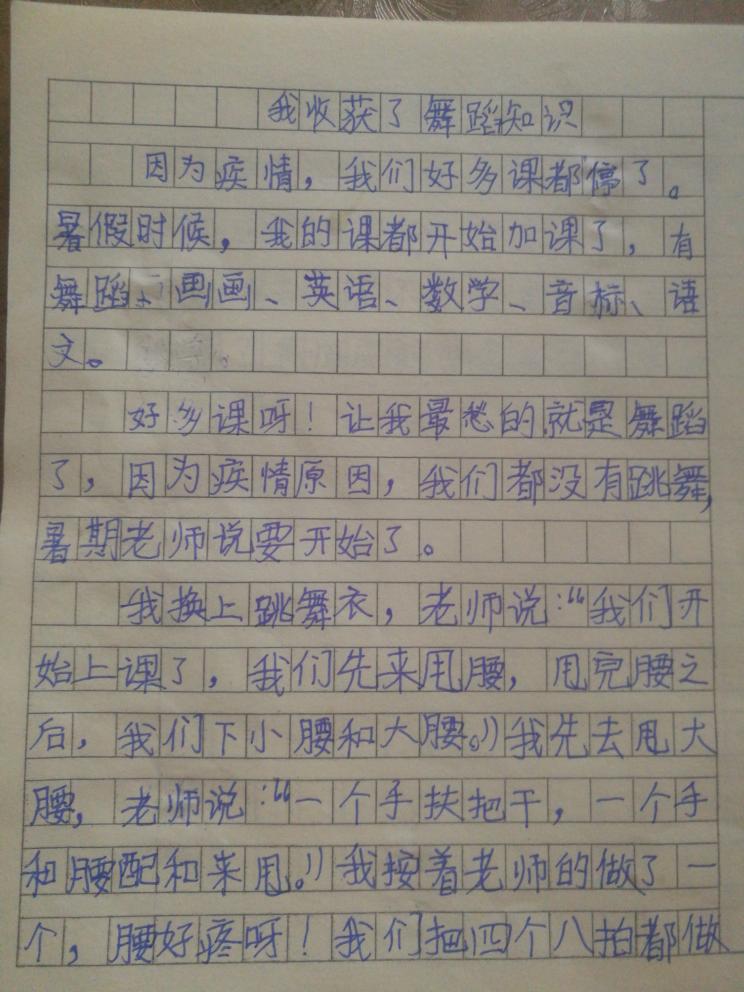 我收获了舞蹈知识
因为疾情，我们好多课都停了。
暑假时候，我的课都开始加课了，有
舞蹈、画画、英语、数学、音标、语
文。
好多课呀！让我最愁的就是舞蹈
了，因为疾情原因，我们都没有跳舞，
暑期老师说要开始了。
我换上跳舞衣，老师说：“我们开
始上课了，我们先来甩腰，甩完腰之
后，我们下小腰和大腰。”我先去甩大
腰，老师说：“一个手扶把干，一个手
和腰配和来甩。”我按着老师的做了一
个，腰好疼呀！我们把四个八拍都做